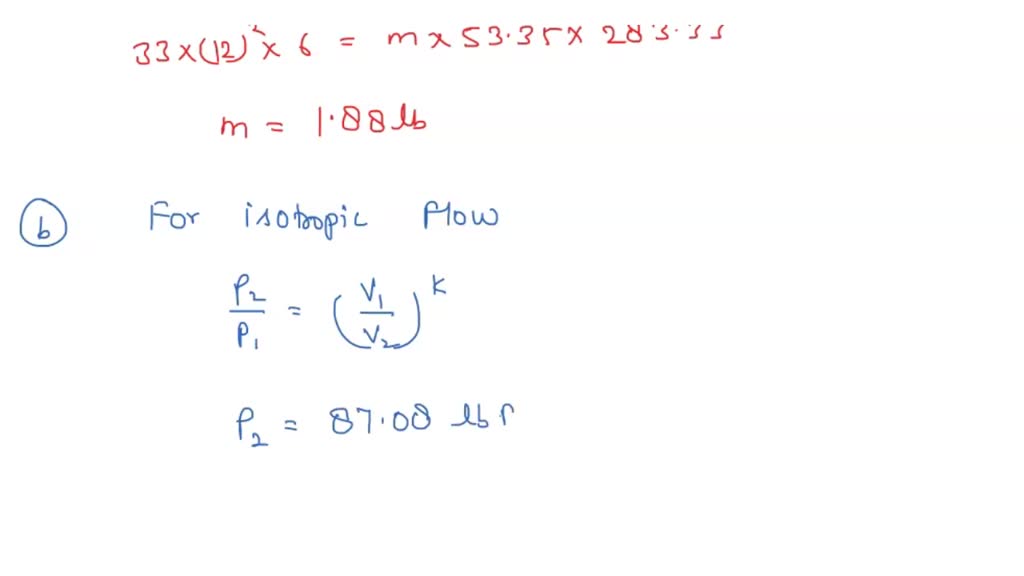 33 x (12)² x 6 = m x 53.35 x 283.33
m = 1.88 lb
b For isotropic flow
P₂/P₁ = (V₁/V₂)^k
P₂ = 87.08 lb f